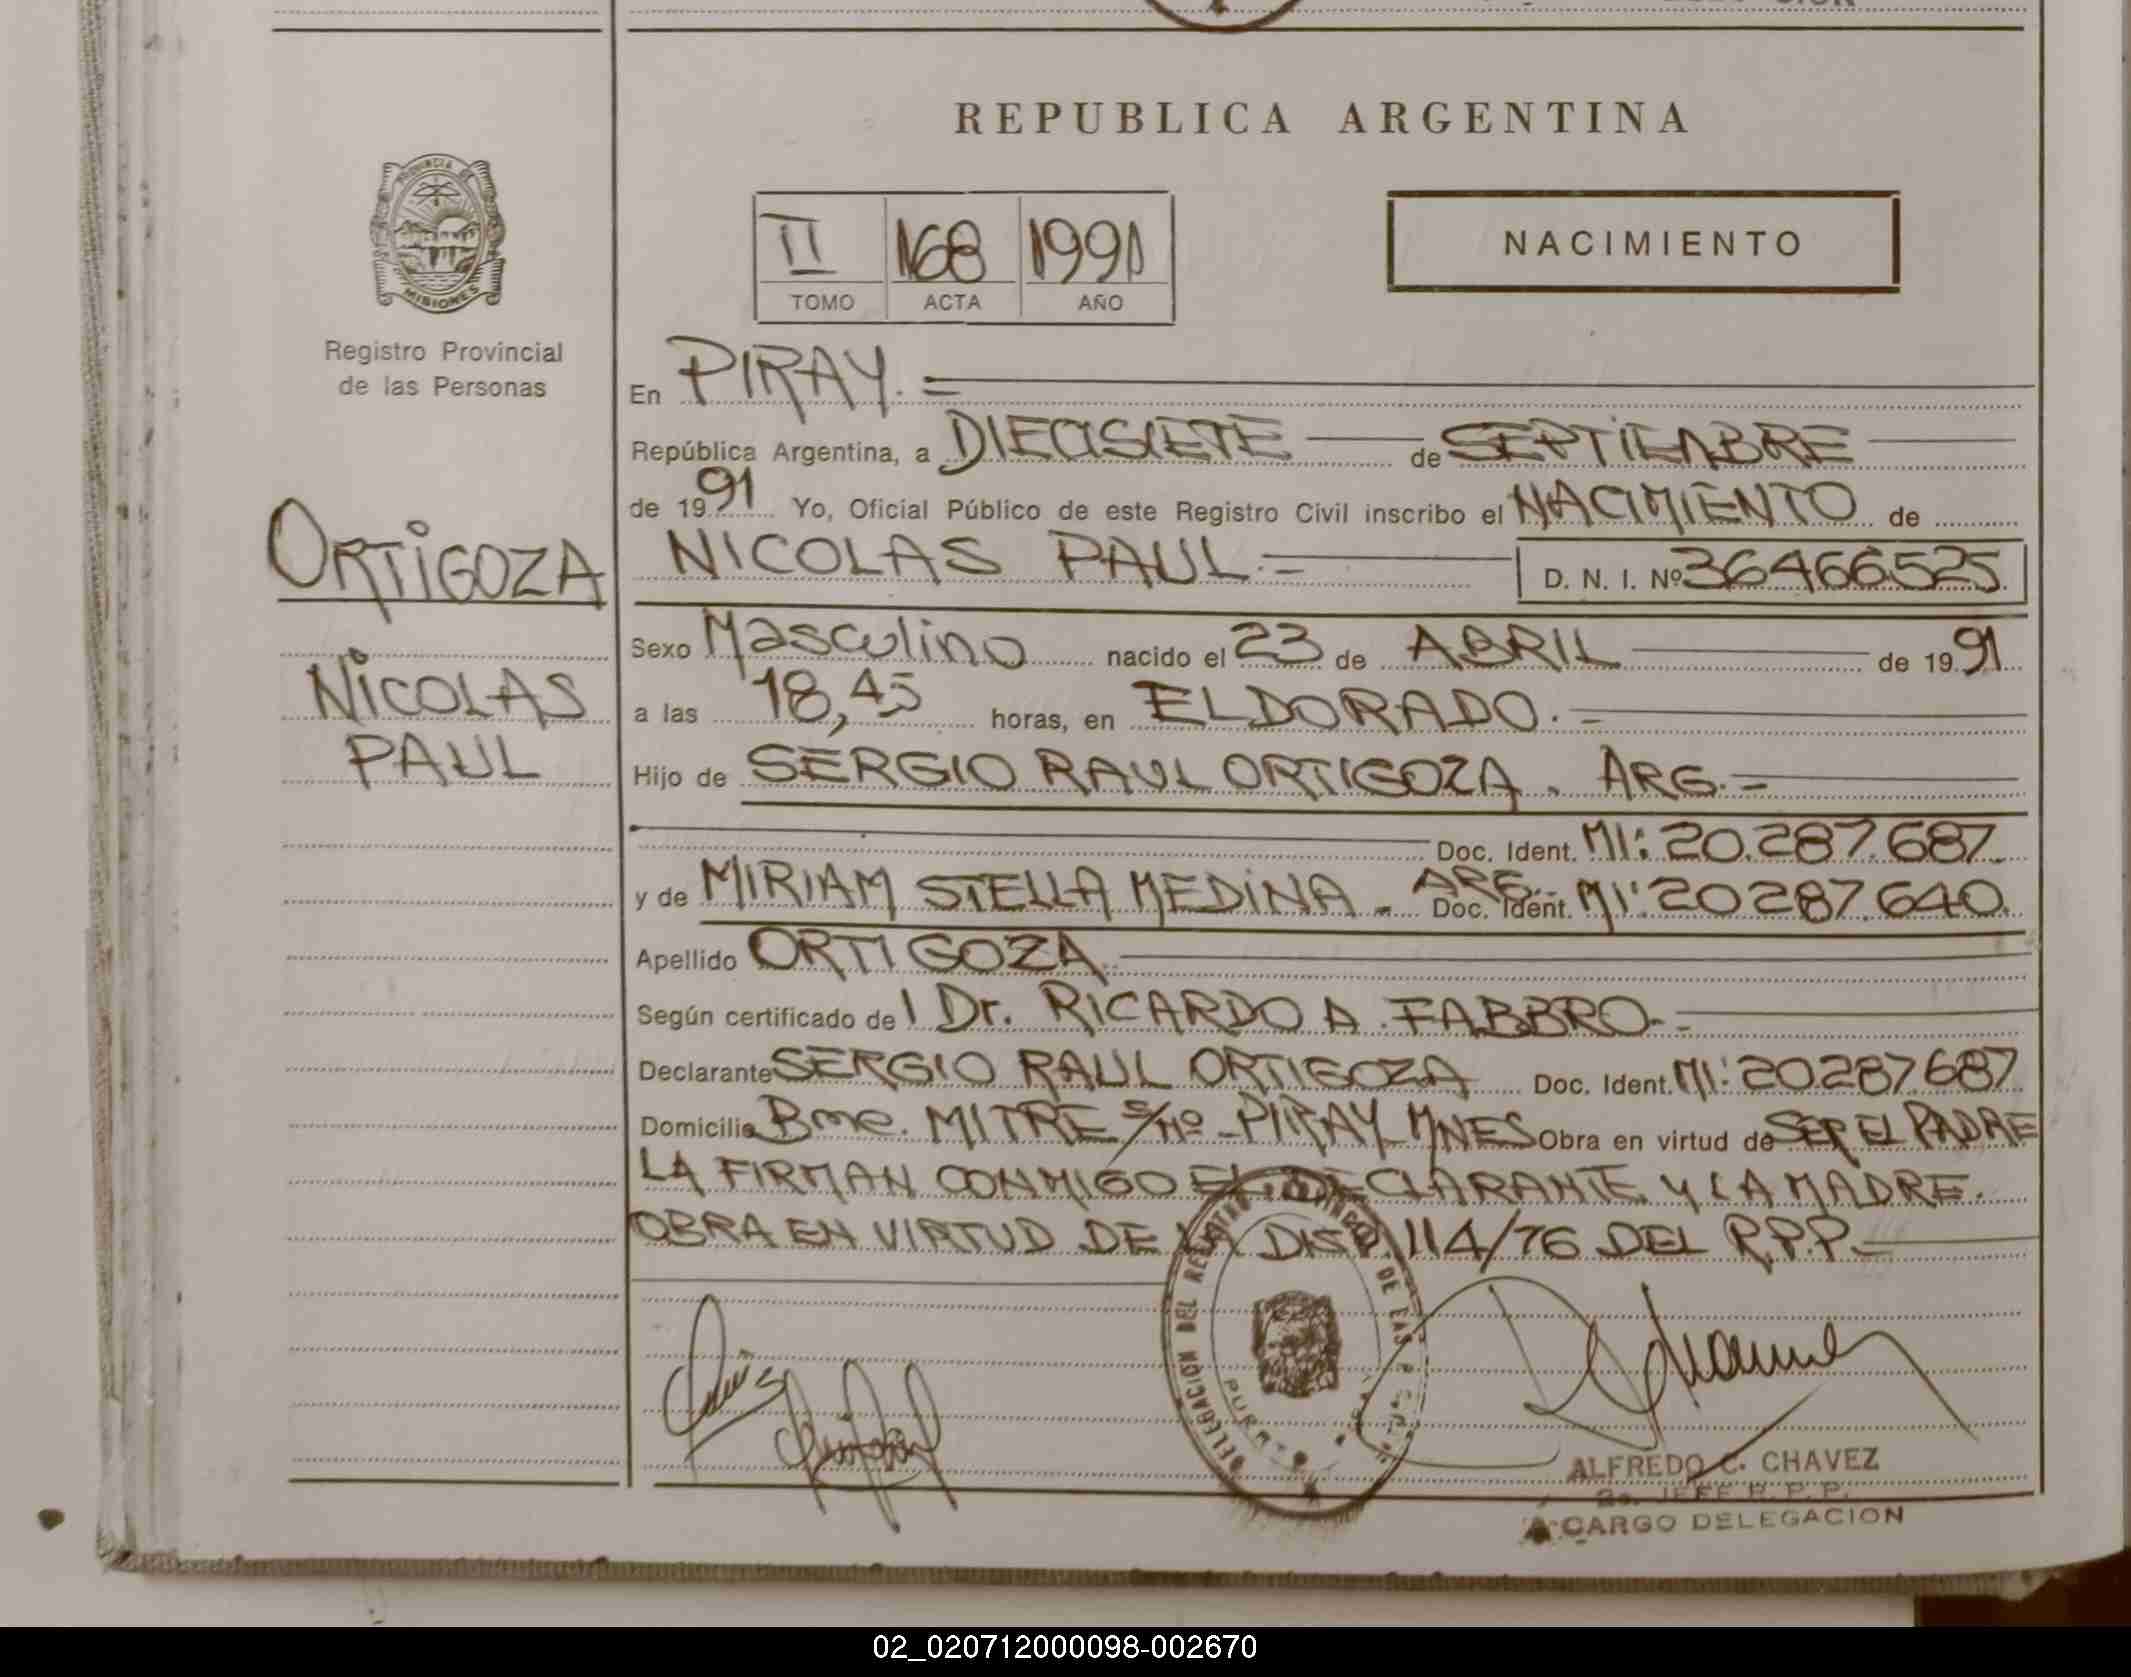 REPUBLICA ARGENTINA
PROVINCIA DE
MISIONES
Registro Provincial
de las Personas
II 168 1991
TOMO ACTA AÑO
NACIMIENTO
ORTIGOZA
NICOLAS
PAUL
En PIRAY.=
República Argentina, a DIECISIETE de SEPTIEMBRE
de 1991 Yo, Oficial Público de este Registro Civil inscribo el NACIMIENTO de
NICOLAS PAUL.= D. N. I. Nº 36466525
Sexo Masculino nacido el 23 de ABRIL de 1991
a las 18,45 horas, en ELDORADO.=
Hijo de SERGIO RAUL ORTIGOZA. ARG.=
Doc. Ident. MI: 20.287.687
y de MIRIAM STELLA MEDINA - ARG. Doc. Ident. MI: 20287.640.
Apellido ORTIGOZA
Según certificado del Dr. RICARDO A. FABBRO.=
Declarante SERGIO RAUL ORTIGOZA Doc. Ident. MI: 20.287.687
Domicilio Bme. MITRE S/Nº - PIRAY MNES Obra en virtud de SER EL PADRE
LA FIRMAN CONMIGO EL DECLARANTE Y LA MADRE.
OBRA EN VIRTUD DE LA DISP. 114/76 DEL R.P.P.
DELEGACION DEL REGISTRO DE LAS
ALFREDO C. CHAVEZ
2o. JEFE R. P. P.
A CARGO DELEGACION
02_020712000098-002670